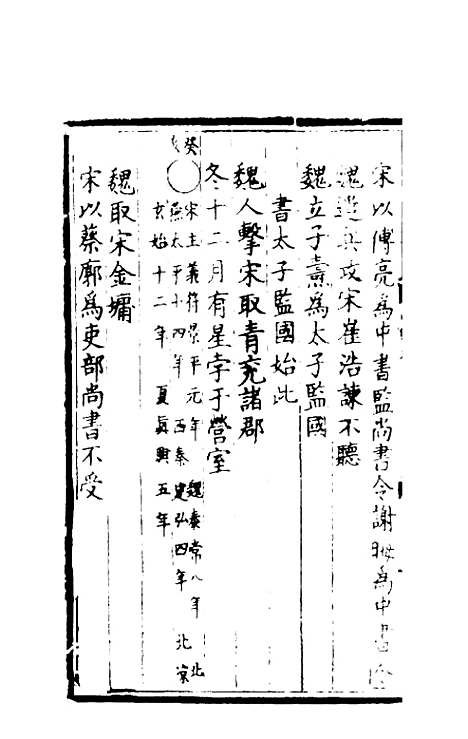 宋以傅亮爲中書監尚書令謝晦爲中書令
魏遣兵攻宋崔浩諫不聽
魏立子燾爲太子監國
書太子監國始此
魏人擊宋取青兗諸郡
冬十二月有星孛于營室
癸亥
宋主義符景平元年 魏泰常八年 北
燕太平十四年 西秦建弘四年 北涼
玄始十二年 夏眞興五年
魏取宋金墉
宋以蔡廓爲吏部尚書不受